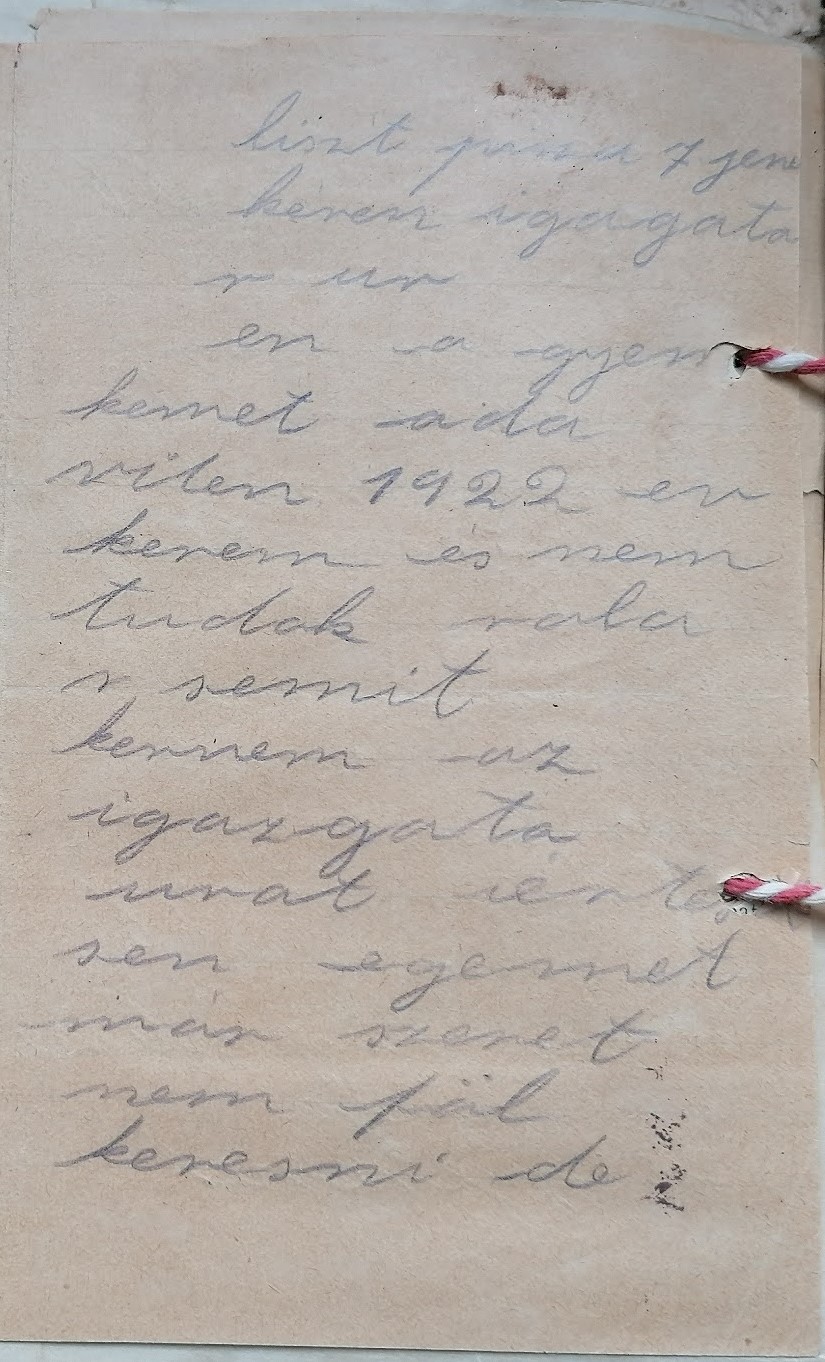 liszt puszu 7 jene
kerem igagata
r ur
en a gyem
kemet ada
viten 1922 en
kerem és nem
tudok rola
r semit
kerrem az
igazgata
urat iérte
sen egemet
már szeret
nem föl
keresni de